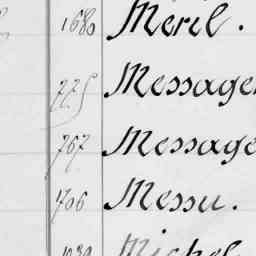 1680 Méril.
775 Messager
767 Message
1706 Messu.
1030 Michel